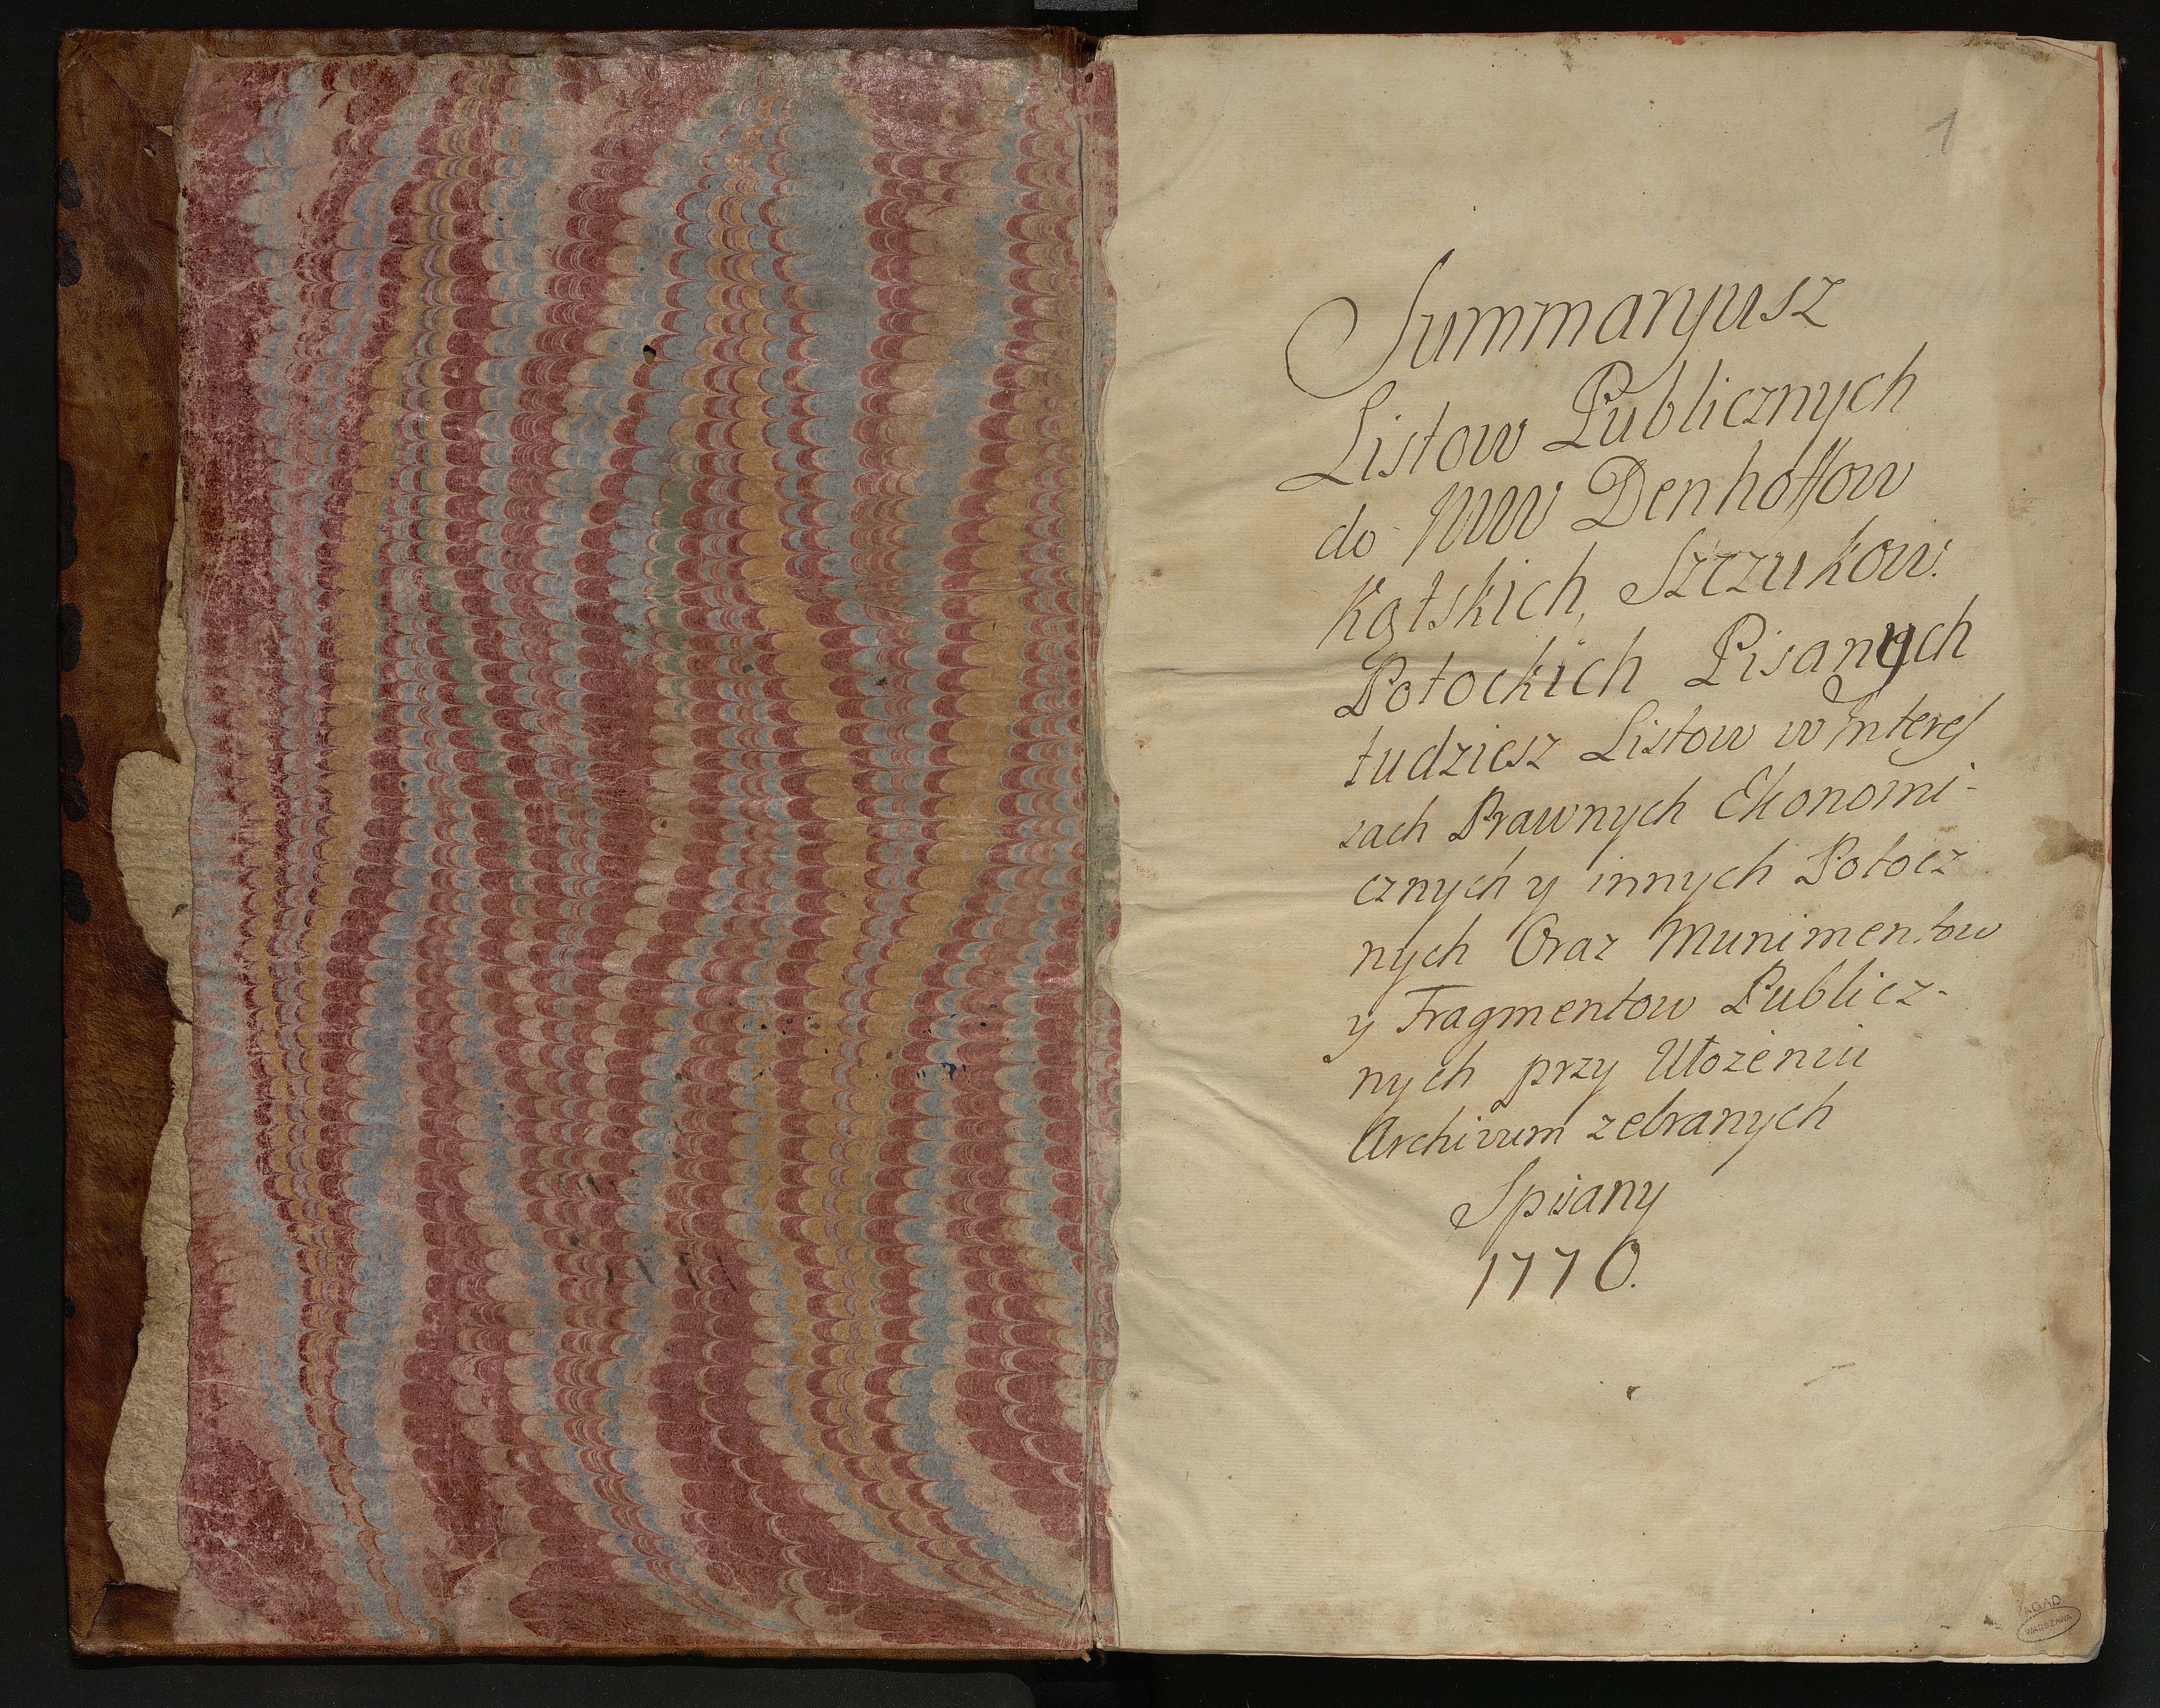 1
Summaryusz
Listow Publicznych
do JWW Denhoffow
Kątskich, Szczukow.
Potockich Pisanych
tudziesz Listow w Interes
sach Prawnych Ekonomi-
cznych y innych Potocz
nych Oraz Munimentow
y Fragmentow Publicz-
nych przy Ułożeniu
Archivum zebranych
Spisany
1770.
AGAD
WARSZAWA